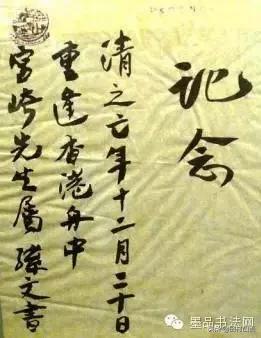 記念
清之亡年十二月二十日
重逢香港舟中
宮崎先生屬 孫文書
墨品书法网